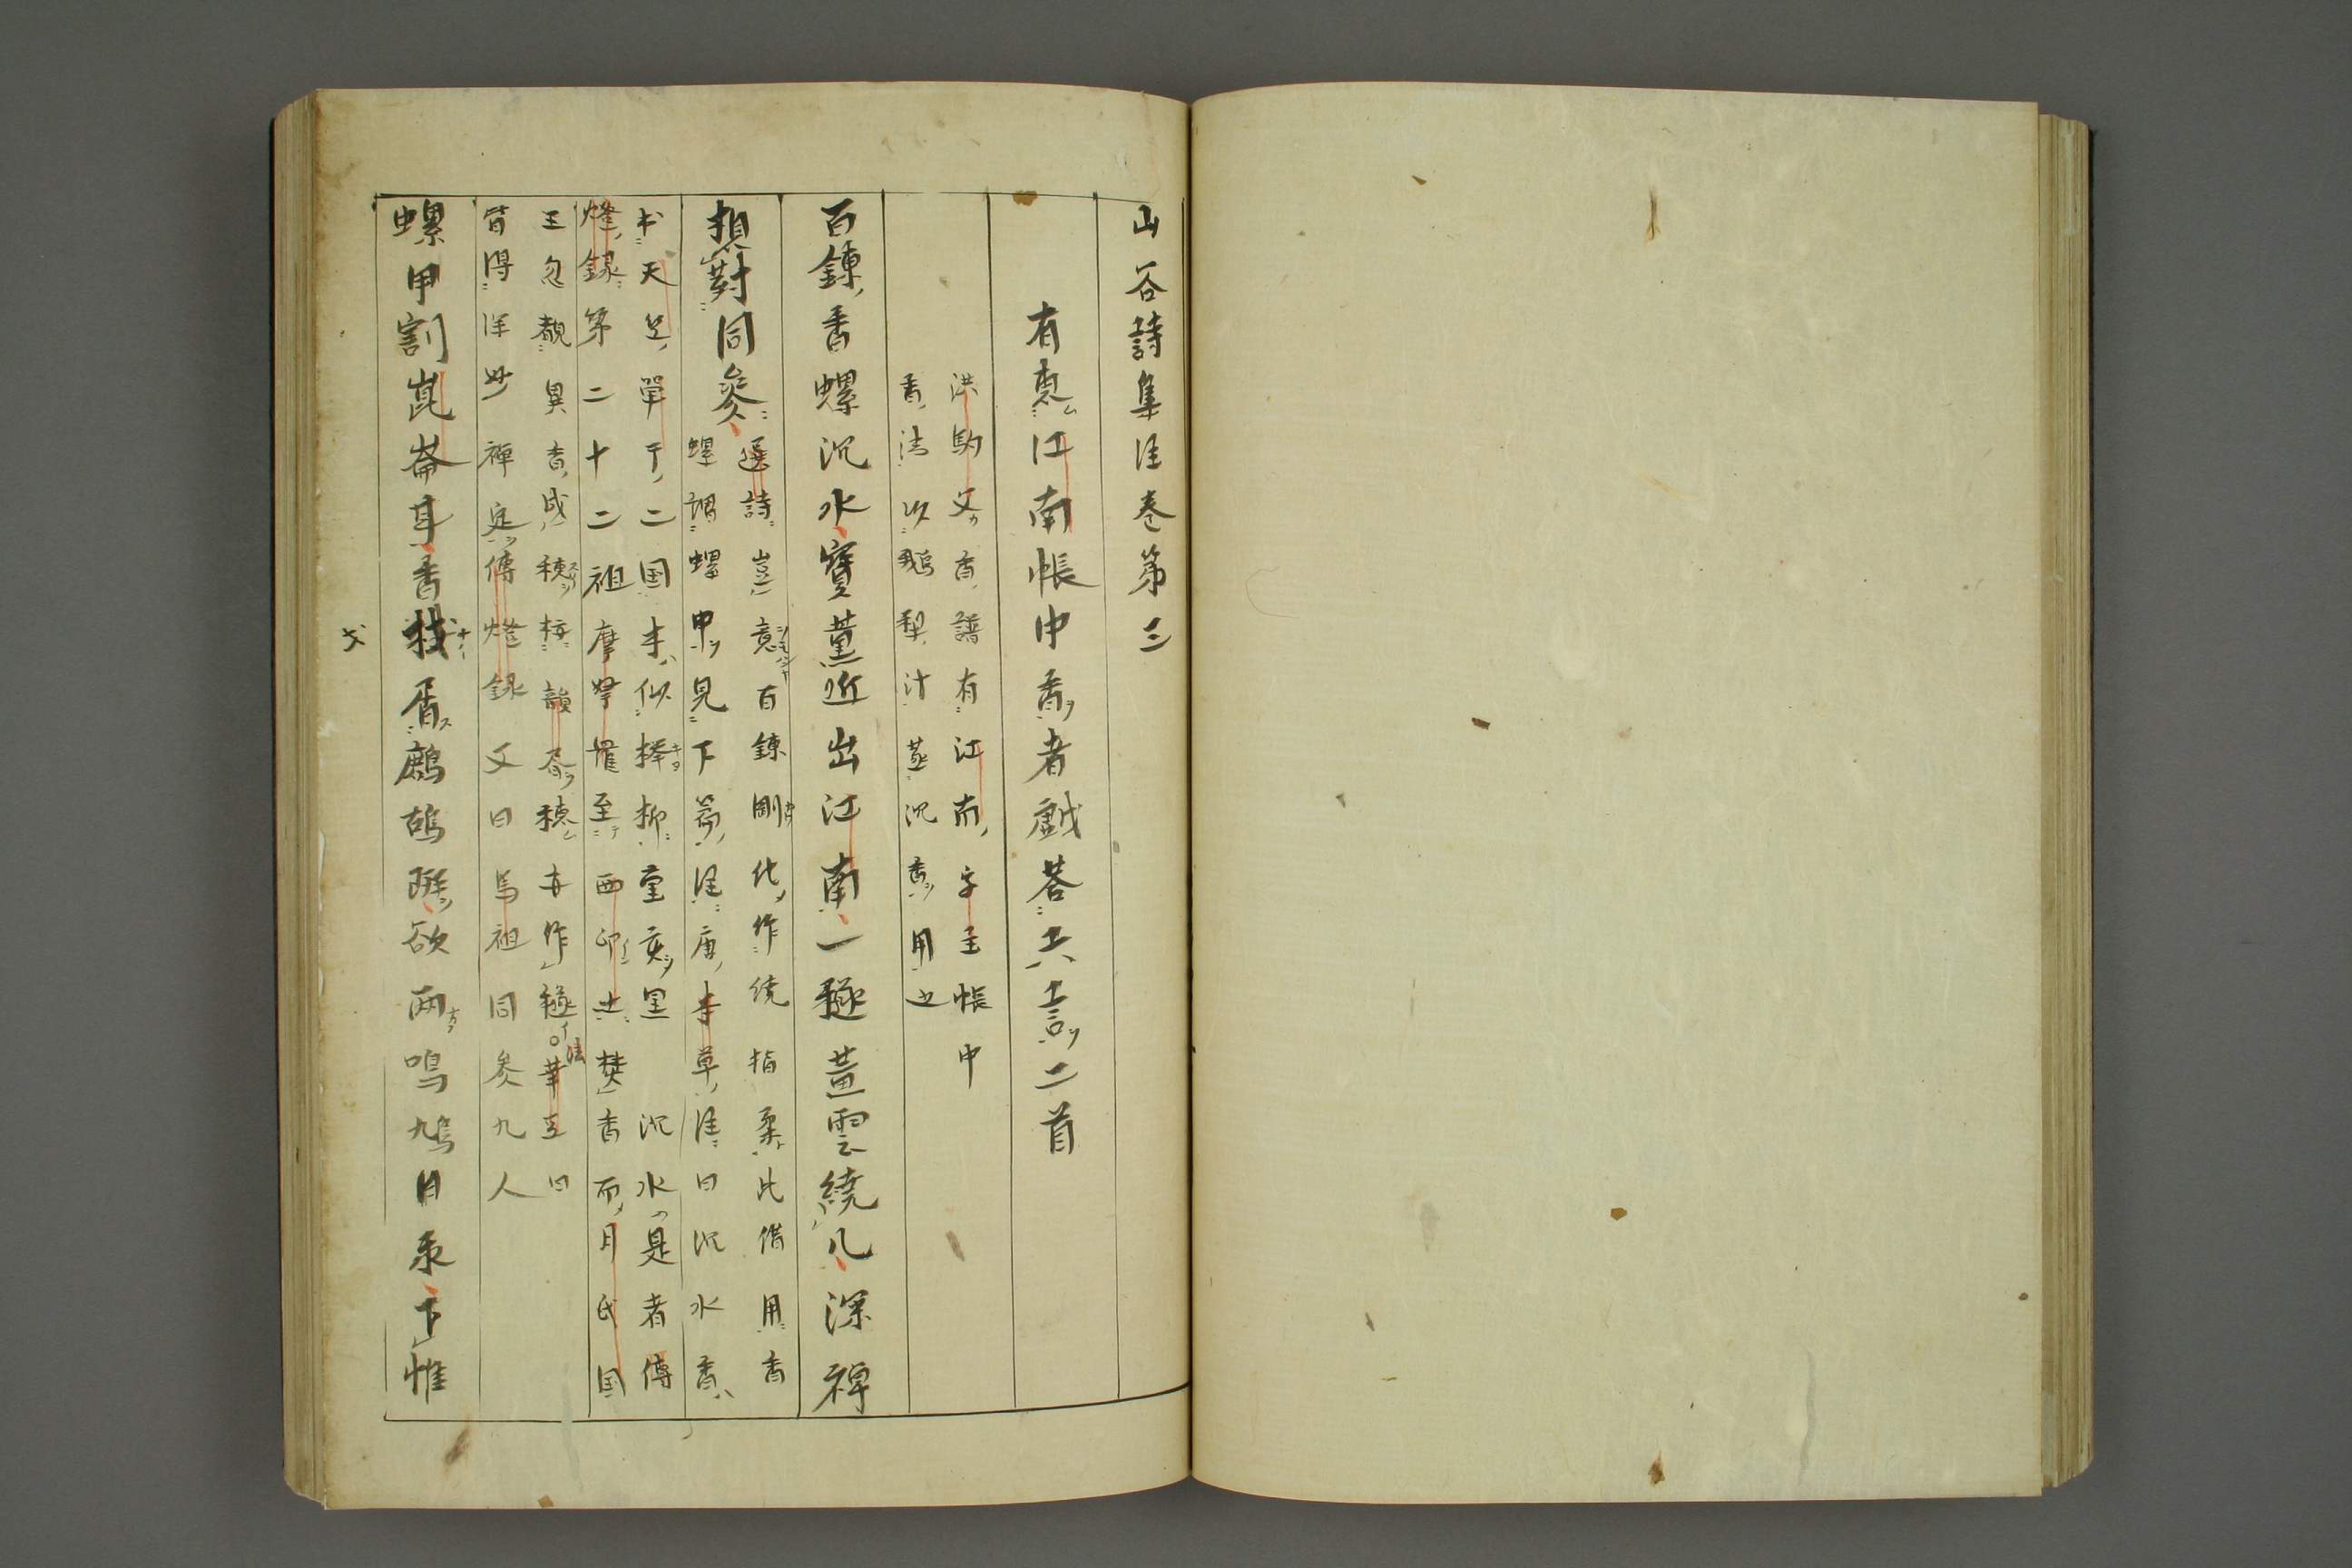 山谷詩集注卷第三
有惠江南帳中香者戯荅六言二首
洪駒父香譜有江南字主帳中
香法以鵝梨汁蒸沉香用之
百鍊香螺沉水寶薫近出江南一穟黄雲繞几深禅
想對同参
選詩豈意百鍊剛化作繞指柔此借用香
螺謂螺甲見下篇注唐本草注曰沉水香
出天竺單于二国木似櫸柳重実黒沉水是者傳
燈録第二十二祖摩拏羅至西印土焚香而月氏国
王忽覩異香成穂按韻屡穂亦作穟法華玄曰
皆得深妙禅定傳燈録文曰馬祖同参九人
螺甲割崑崙耳香材屑鷓鴣斑欲雨鳴鳩日永下惟